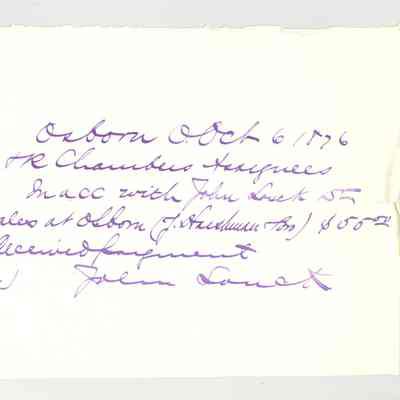 Osborn O. Oct 6 1876
& R Chambers Assignees
In acc with John Louck Dr
ales at Osborn (J. Harshman Bro) $50.00
Received payment
John Louck